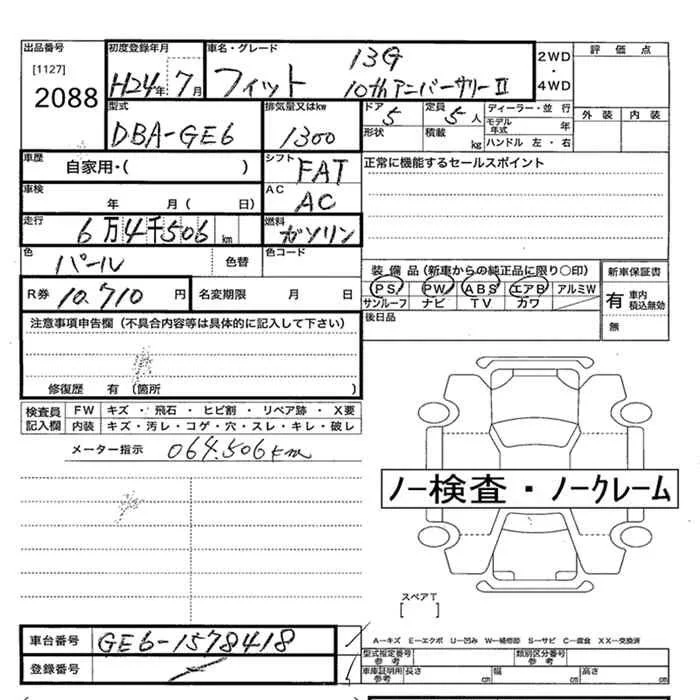 出品番号 初度登録年月 車名・グレード 13G 2WD 評価点
[1127] H24年 7月 フィット 10thアニバーサリーⅡ ・
2088 4WD
型式 排気量又はkw ドア 5 定員 5人 ディーラー・並 行 外装 内装
DBA-GE6 1300 形状 積載 kg モデル年式 年
ハンドル 左・右
車歴 自家用・( ) シフト FAT 正常に機能するセールスポイント
車検 年 月( 日) AC AC
走行 6万4千506km 燃料 ガソリン
色 パール 色替 色コード
装備品(新車からの純正品に限り○印) 新車保証書
R券 10,710円 名変期限 月 日 PS PW ABS エアB アルミW 有 車内積込無効
サンルーフ ナビ TV カワ 無
注意事項申告欄(不具合内容等は具体的に記入して下さい) 後日品
修復歴 有 (箇所 )
検査員記入欄 FW キズ・飛石・ヒビ割・リペア跡・X要
内装 キズ・汚レ・コゲ・穴・スレ・キレ・破レ
メーター指示 064,506km
ノー検査・ノークレーム
スペアT
[ ]
車台番号 GE6-1578418
A−キズ E−エクボ U−凹み W−補修跡 S−サビ C−腐食 XX−交換済
登録番号
型式指定番号 参考 類別区分番号 参考
車庫証明用 参考 長さ cm 幅 cm 高さ cm